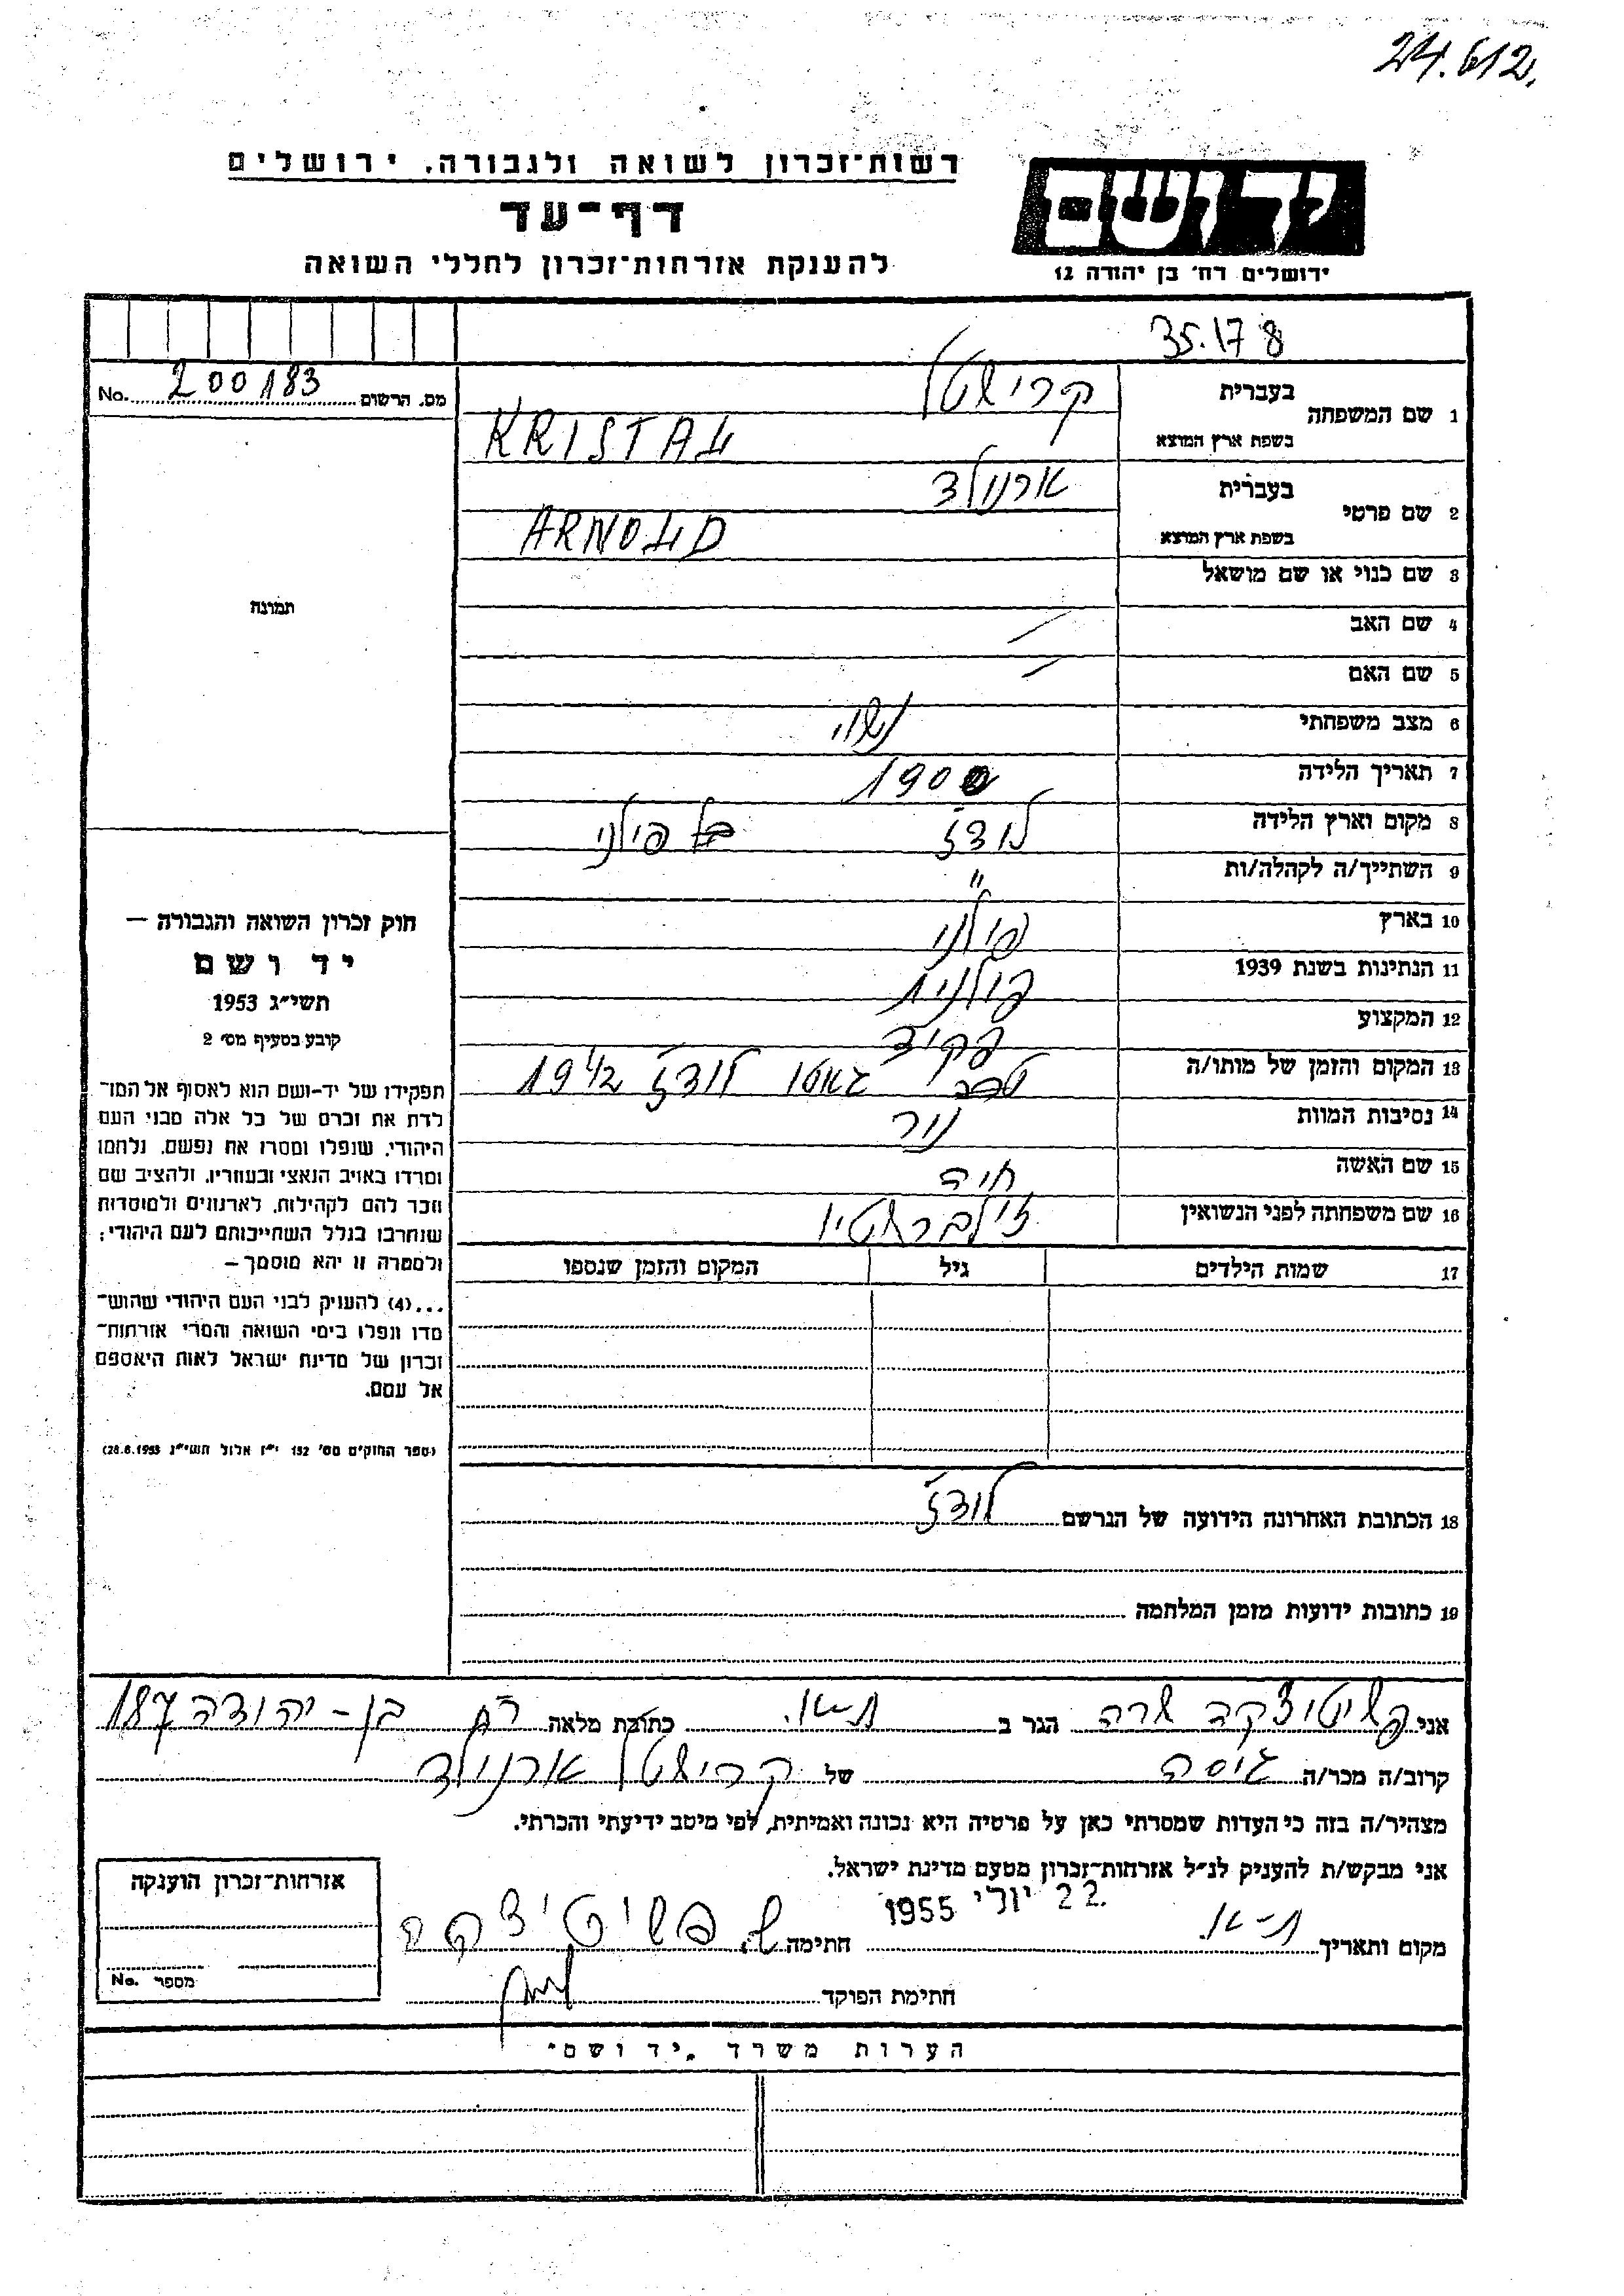 24.612.
רשות־זכרון לשואה ולגבורה, ירושלים
דף־עד
להענקת אזרחות־זכרון לחללי השואה
יד ושם
ירושלים רח' בן יהודה 12
35.178
מס. הרשום 200183 No.
1 שם המשפחה
בעברית קרישטל
בשפת ארץ המוצא KRISTAL
2 שם פרטי
בעברית ארנולד
בשפת ארץ המוצא ARNOLD
3 שם כנוי או שם מושאל
4 שם האב —
5 שם האם —
6 מצב משפחתי נשוי
7 תאריך הלידה 1900
8 מקום וארץ הלידה לודז' פולני
9 השתייך/ה לקהלה/ות "
10 בארץ פולני
11 הנתינות בשנת 1939 פולנית
12 המקצוע פקיד
13 המקום והזמן של מותו/ה גאטו לודז' 1942
14 נסיבות המוות
15 שם האשה חיה
16 שם משפחתה לפני הנשואין
17 שמות הילדים גיל המקום והזמן שנספו
תמונה
חוק זכרון השואה והגבורה —
יד ושם
תשי״ג 1953
קובע בסעיף מס׳ 2
תפקידו של יד-ושם הוא לאסוף אל המו־
לדת את זכרם של כל אלה מבני העם
היהודי, שנפלו ומסרו את נפשם, נלחמו
ומרדו באויב הנאצי ובעוזריו, ולהציב שם
וזכר להם לקהילות, לארגונים ולמוסדות
שנחרבו בגלל השתייכותם לעם היהודי;
ולמטרה זו יהא מוסמך —
...(4) להעניק לבני העם היהודי שהוש־
מדו ונפלו בימי השואה והמרי אזרחות־
זכרון של מדינת ישראל לאות היאספם
אל עמם.
(ספר החוקים מס׳ 132 י״ז אלול תשי״ג 28.8.1953)
18 הכתובת האחרונה הידועה של הנרשם לודז'
19 כתובות ידועות מזמן המלחמה
אני פשיטיצקה שרה הגר ב ת-א. כתובת מלאה רח בן-יהודה 187
קרוב/ה מכר/ה גיסה של קרישטל ארנולד
מצהיר/ה בזה כי העדות שמסרתי כאן על פרטיה היא נכונה ואמיתית, לפי מיטב ידיעתי והכרתי.
אני מבקש/ת להעניק לנ״ל אזרחות־זכרון מטעם מדינת ישראל.
מקום ותאריך ת-א. 22 יולי 1955 חתימה ש. פשיטיצקה
חתימת הפוקד
אזרחות־זכרון הוענקה
מספר No.
הערות משרד "יד ושם"